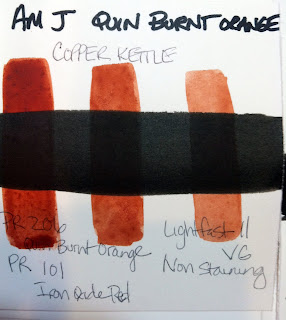 AM J QUIN BURNT ORANGE
COPPER KETTLE
PR 206 Lightfast 11
Quin Burnt Orange VG
PR 101 Non Staining
Iron Oxide Red